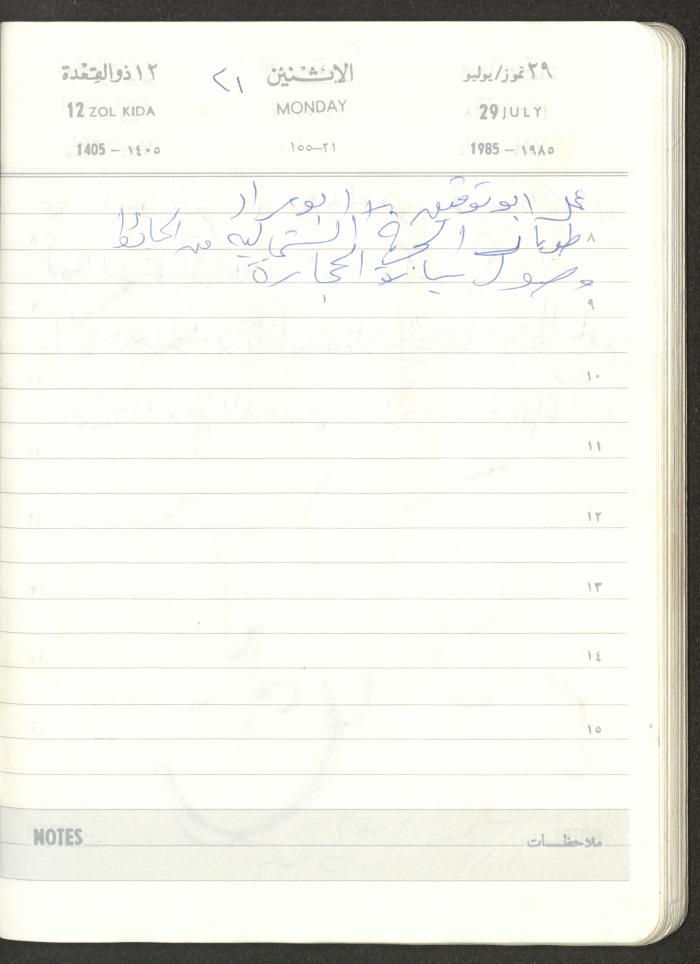 ٢٩ تموز/يوليو الاثنين ٢١ ١٢ ذوالقعدة
29 JULY MONDAY 12 ZOL KIDA
1985 – ١٩٨٥ ٢١–١٥٥ 1405 – ١٤٠٥
عمل ابو توفيق ابو مراد
٨ طوبار الشمالية من الحائط
وصول سيارة الحجارة
٩
١٠
١١
١٢
١٣
١٤
١٥
NOTES ملاحظات